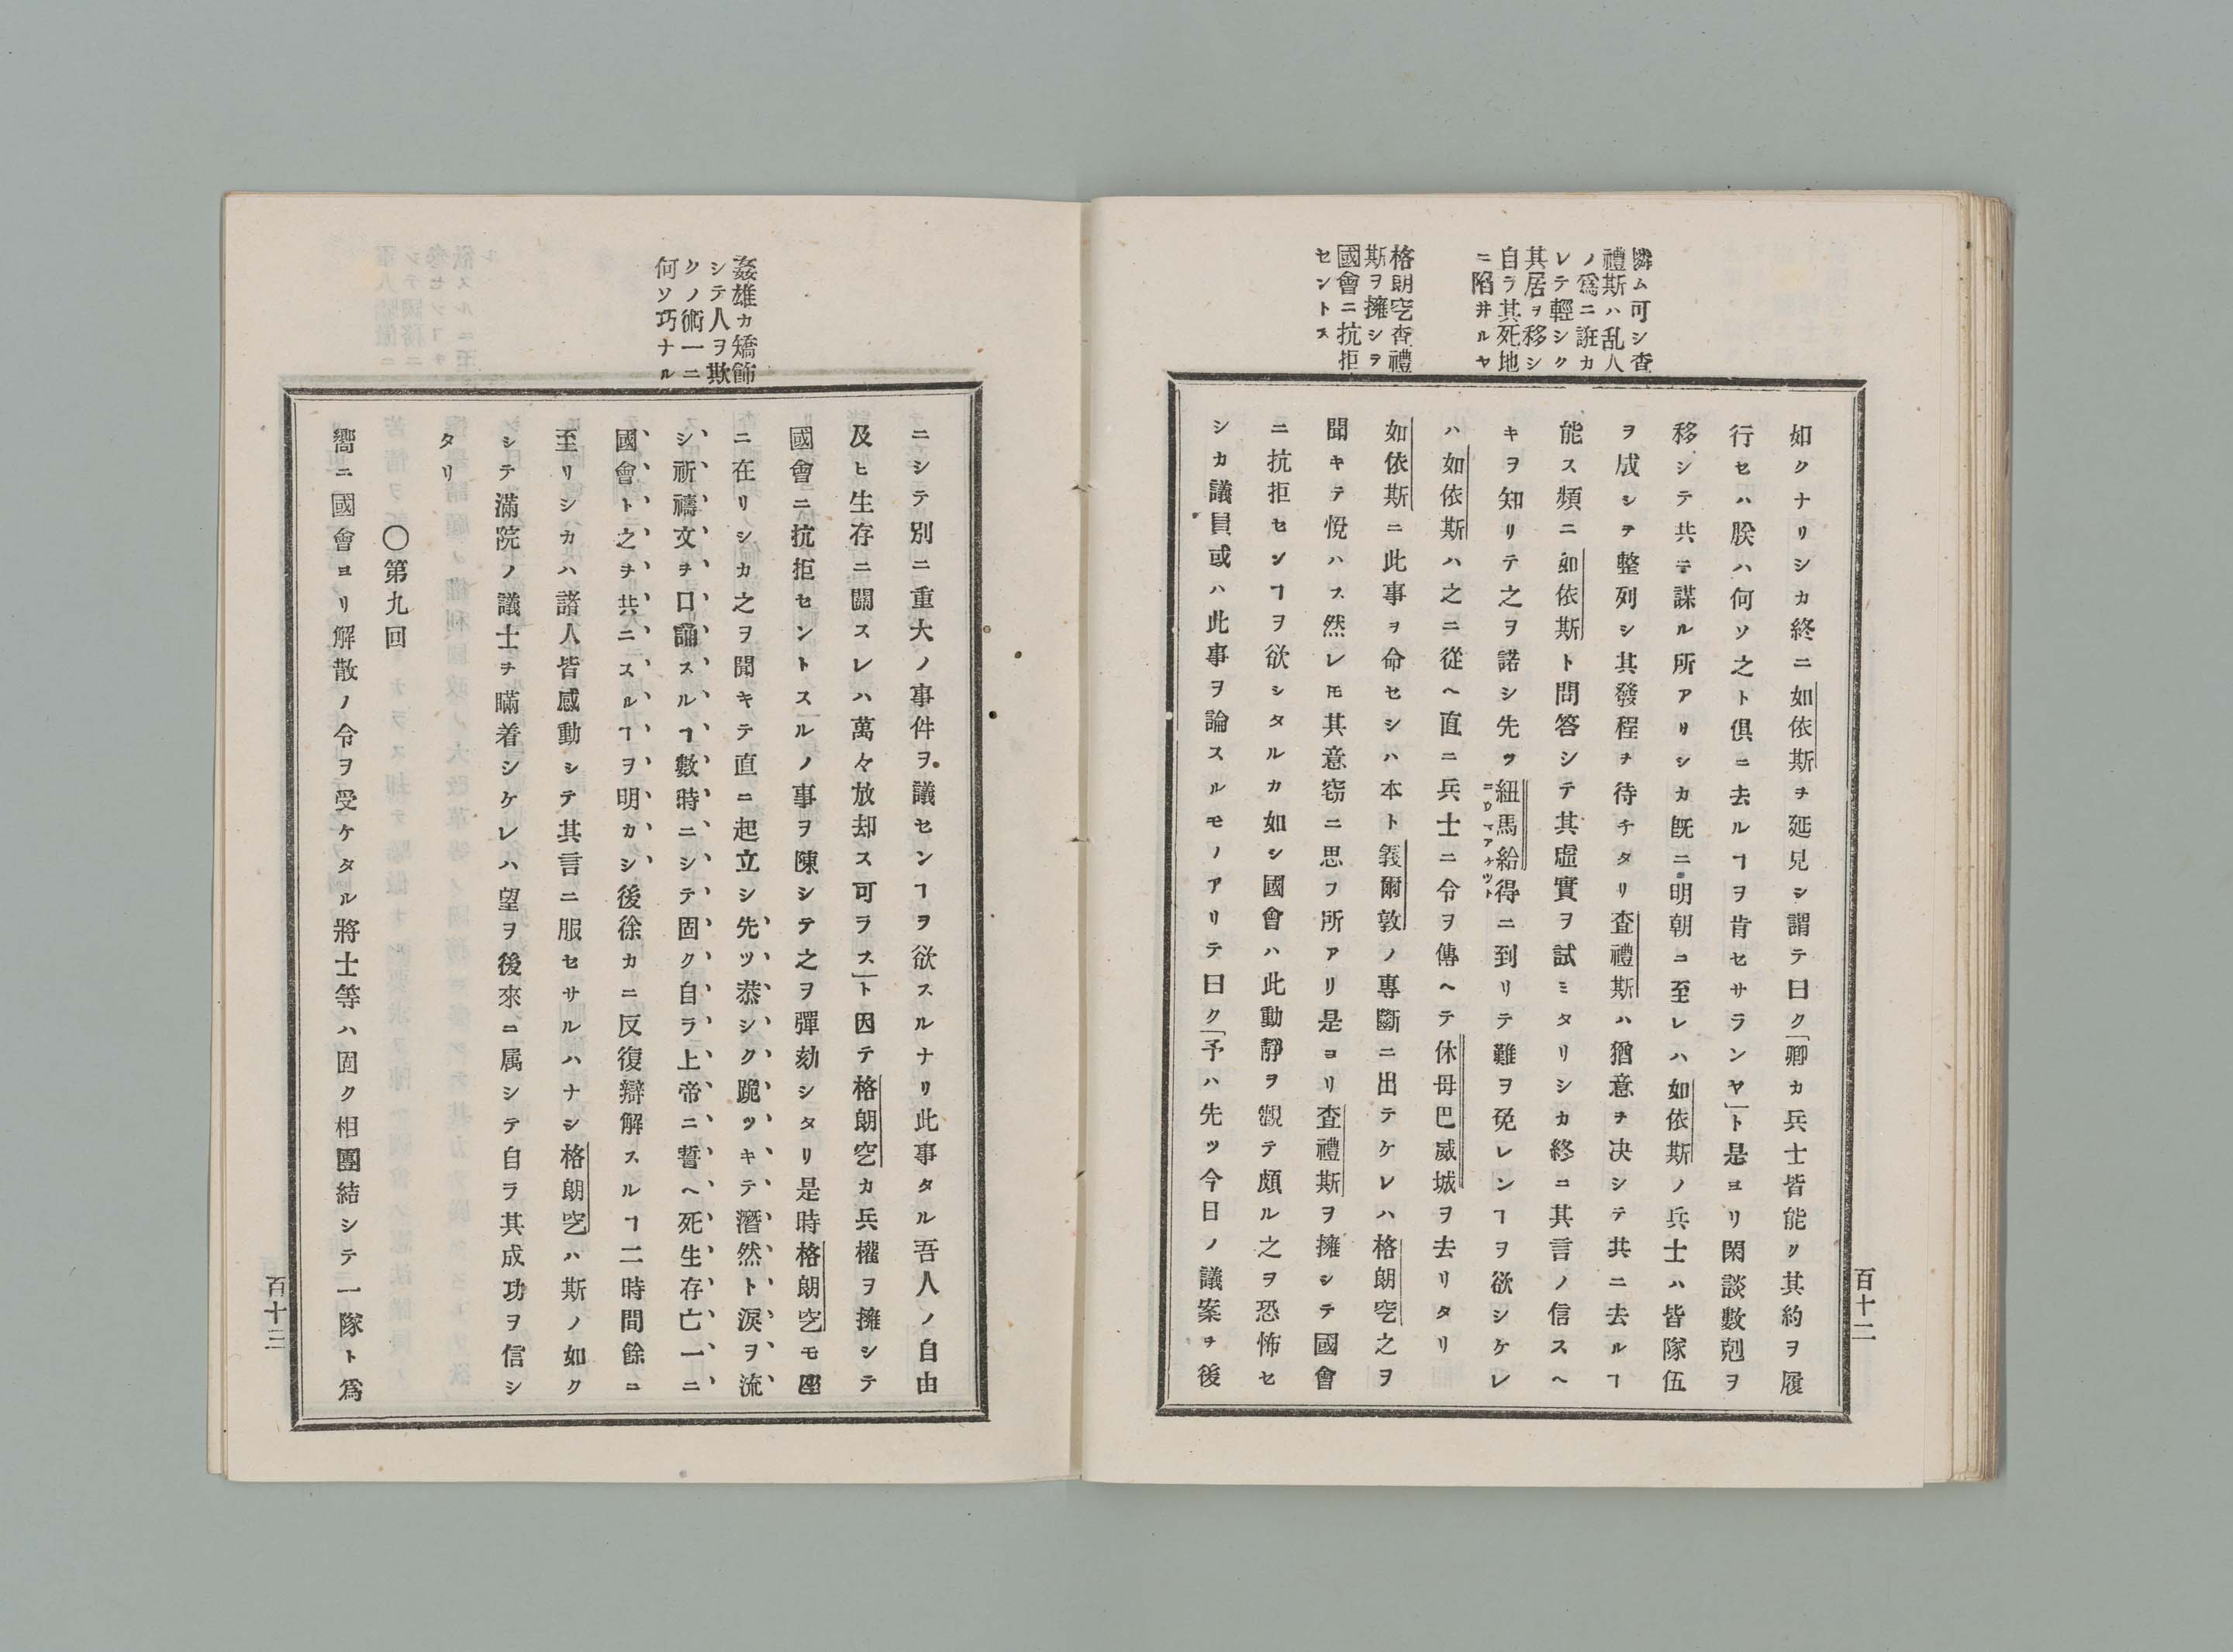 憐ム可シ査
禮斯ハ乱人
ノ爲ニ誑カ
レテ輕シク
其居ヲ移シ
自ラ其死地
ニ陷井ルヤ
格朗穵査禮
斯ヲ擁シヲ
國會ニ抗拒
セントス
如クナリシカ終ニ如依斯ヲ延見シ謂テ曰ク「卿カ兵士皆能ク其約ヲ履
行セハ朕ハ何ソ之ト俱ニ去ルヿヲ肯セサランヤ」ト是ヨリ閑談數剋ヲ
移シテ共ニ謀ル所アリシカ既ニ明朝ニ至レハ如依斯ノ兵士ハ皆隊伍
ヲ成シテ整列シ其發程ヲ待チタリ査禮斯ハ猶意ヲ决シテ共ニ去ルヿ
能ス頻ニ如依斯ト問答シテ其虛實ヲ試ミタリシカ終ニ其言ノ信スヘ
キヲ知リテ之ヲ諾シ先ツ紐馬給得ニ到リテ難ヲ免レンヿヲ欲シケレ
ニウマアケツト
ハ如依斯ハ之ニ從ヘ直ニ兵士ニ令ヲ傳ヘテ休母巴威城ヲ去リタリ
如依斯ニ此事ヲ命セシハ本ト義爾敦ノ專斷ニ出テケレハ格朗穵之ヲ
聞キテ悅ハス然レ𪜈其意窃ニ思フ所アリ是ヨリ査禮斯ヲ擁シテ國會
ニ抗拒センヿヲ欲シタルカ如シ國會ハ此動靜ヲ觀テ頗ル之ヲ恐怖セ
シカ議員或ハ此事ヲ論スルモノアリテ曰ク「予ハ先ツ今日ノ議案ヲ後
百十二
姦雄カ矯飾
シテ人ヲ欺
クノ術一ニ
何ソ巧ナル
ニシテ別ニ重大ノ事件ヲ議センヿヲ欲スルナリ此事タル吾人ノ自由
及ヒ生存ニ關スレハ萬々放却ス可ラス」ト因テ格朗穵カ兵權ヲ擁シテ
國會ニ抗拒セントスルノ事ヲ陳シテ之ヲ彈劾シタリ是時格朗穵モ座
ニ在リシカ之ヲ聞キテ直ニ起立シ先ツ恭シク跪ツキテ潛然ト淚ヲ流
シ祈禱文ヲ口誦スルヿ數時ニシテ固ク自ラ上帝ニ誓ヘ死生存亡一ニ
國會ト之ヲ共ニスルヿヲ明カシ後徐カニ反復辯解スルヿ二時間餘ニ
至リシカハ諸人皆感動シテ其言ニ服セサルハナシ格朗穵ハ斯ノ如ク
シテ滿院ノ議士ヲ瞞着シケレハ望ヲ後來ニ属シテ自ラ其成功ヲ信シ
タリ
〇第九回
嚮ニ國會ヨリ解散ノ令ヲ受ケタル將士等ハ固ク相團結シテ一隊ト爲
百十三